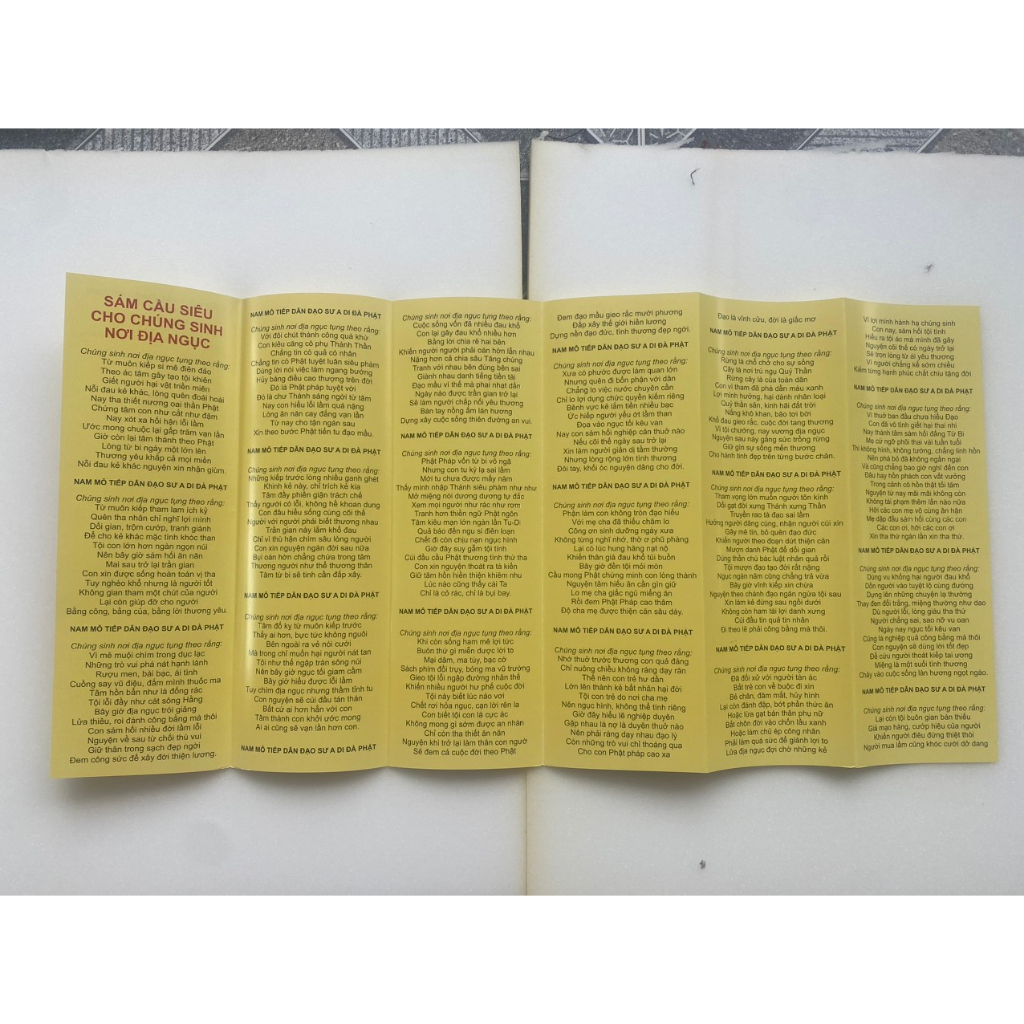 SÁM CẦU SIÊU
CHO CHÚNG SINH
NƠI ĐỊA NGỤC
Chúng sinh nơi địa ngục tụng theo rằng:
Từ muôn kiếp si mê điên đảo
Theo ác tâm gây tạo tội khiên
Giết người hại vật triền miên
Nỗi đau kẻ khác, lòng quên đoái hoài
Nay tha thiết nương oai thần Phật
Chứng tâm con như cát như đậm
Nay xót xa hối hận lỗi lầm
Ước mong chuộc lại gấp trăm vạn lần
Giờ còn lại tâm thành theo Phật
Lòng từ bi ngày một lớn lên
Thương yêu khắp cả mọi miền
Nỗi đau kẻ khác nguyện xin nhận giùm.
NAM MÔ TIẾP DẪN ĐẠO SƯ A DI ĐÀ PHẬT
Chúng sinh nơi địa ngục tụng theo rằng:
Từ muôn kiếp tham lam ích kỷ
Quên tha nhân chỉ nghĩ lợi mình
Dối gian, trộm cướp, tranh giành
Để cho kẻ khác mặc tình khóc than
Tội con lớn hơn ngàn ngọn núi
Nên bây giờ sám hối ăn năn
Mai sau trở lại trần gian
Con xin được sống hoàn toàn vị tha
Tuy nghèo khổ nhưng là người tốt
Không gian tham một chút của người
Lại còn giúp đỡ cho người
Bằng công, bằng của, bằng lời thương yêu.
NAM MÔ TIẾP DẪN ĐẠO SƯ A DI ĐÀ PHẬT
Chúng sinh nơi địa ngục tụng theo rằng:
Vì mê muội chìm trong dục lạc
Những trò vui phá nát hạnh lành
Rượu men, bài bạc, ái tình
Cuồng say vũ điệu, đắm mình thuốc ma
Tâm hồn bẩn như là đống rác
Tội lỗi đầy như cát sông Hằng
Bây giờ địa ngục trói giăng
Lửa thiêu, roi đánh công bằng mà thôi
Con sám hối nhiều đời lầm lỗi
Nguyện về sau từ chối thú vui
Giữ thân trong sạch đẹp ngời
Đem công sức để xây đời thiện lương.
NAM MÔ TIẾP DẪN ĐẠO SƯ A DI ĐÀ PHẬT
Chúng sinh nơi địa ngục tụng theo rằng:
Với đôi chút thành công quá khứ
Con kiêu căng cô phụ Thánh Thần
Chẳng tin có quả có nhân
Chẳng tin có Phật tuyệt luân siêu phàm
Dùng lời nói việc làm ngang bướng
Hủy báng điều cao thượng trên đời
Đó là Phật pháp tuyệt vời
Đó là chư Thánh sáng ngời từ tâm
Nay con hiểu lỗi lầm quá nặng
Lòng ăn năn cay đắng vạn lần
Từ nay cho tận ngàn sau
Xin theo bước Phật tiến tu đạo mầu.
NAM MÔ TIẾP DẪN ĐẠO SƯ A DI ĐÀ PHẬT
Chúng sinh nơi địa ngục tụng theo rằng:
Những kiếp trước lòng nhiều ganh ghét
Khinh kẻ này, chỉ trích kẻ kia
Tâm đầy phiền giận trách chê
Thấy người có lỗi, không hề khoan dung
Con đâu hiểu sống cùng cõi thế
Người với người phải biết thương nhau
Trần gian này lắm khổ đau
Chỉ vì thù hận chìm sâu lòng người
Con xin nguyện ngàn đời sau nữa
Bụi oán hờn chẳng chứa trong tâm
Thương người như thể thương thân
Tâm từ bi sẽ tinh cần đắp xây.
NAM MÔ TIẾP DẪN ĐẠO SƯ A DI ĐÀ PHẬT
Chúng sinh nơi địa ngục tụng theo rằng:
Tâm đố kỵ từ muôn kiếp trước
Thấy ai hơn, bực tức không nguôi
Bên ngoài ra vẻ nói cười
Mà trong chỉ muốn hại người nát tan
Tội như thế ngập tràn sông núi
Nên bây giờ ngục tối giam cầm
Bây giờ hiểu được lỗi lầm
Tuy chìm địa ngục nhưng thầm tỉnh tu
Con nguyện sẽ cúi đầu tán thán
Bất cứ ai hơn hẳn với con
Tâm thành con khởi ước mong
Ai ai cũng sẽ vạn lần hơn con.
NAM MÔ TIẾP DẪN ĐẠO SƯ A DI ĐÀ PHẬT
Chúng sinh nơi địa ngục tụng theo rằng:
Cuộc sống vốn đã nhiều đau khổ
Con lại gây đau khổ nhiều hơn
Bằng lời chia rẽ hai bên
Khiến người người phải oán hờn lẫn nhau
Nặng hơn cả chia sâu Tăng chúng
Tranh với nhau bên đúng bên sai
Giành nhau danh tiếng tiền tài
Đạo mầu vì thế mà phai nhạt dần
Ngày nào được trần gian trở lại
Sẽ làm người chắp nối yêu thương
Bàn tay nồng ấm lan hương
Dựng xây cuộc sống thiên đường an vui.
NAM MÔ TIẾP DẪN ĐẠO SƯ A DI ĐÀ PHẬT
Chúng sinh nơi địa ngục tụng theo rằng:
Phật Pháp vốn từ bi vô ngã
Nhưng con tu kỳ lạ sai lầm
Mới tu chưa được mấy năm
Thấy mình nhập Thánh siêu phàm như như
Mở miệng nói dương dương tự đắc
Xem mọi người như rác như rơm
Tranh hơn thiền ngữ Phật ngôn
Tâm kiêu mạn lớn ngàn lần Tu-Di
Quả báo đến ngu si điên loạn
Chết đi còn chịu nạn ngục hình
Giờ đây suy gẫm tội tình
Cúi đầu cầu Phật thương tình thứ tha
Con xin nguyện thoát ra tà kiến
Giữ tâm hồn hiền thiện khiêm nhu
Lúc nào cũng thấy cái Ta
Chỉ là cỏ rác, chỉ là bụi bay.
NAM MÔ TIẾP DẪN ĐẠO SƯ A DI ĐÀ PHẬT
Chúng sinh nơi địa ngục tụng theo rằng:
Khi còn sống ham mê lợi tức
Buôn thứ gì miễn được lời to
Mại dâm, ma túy, bạc cờ
Sách phim đồi trụy, bóng ma vũ trường
Gieo tội lỗi ngập đường nhân thế
Khiến nhiều người hư phế cuộc đời
Tội này biết lúc nào vơi
Chết rơi hỏa ngục, cạn lời rên la
Con biết tội con là cực ác
Không mong gì sớm được an nhàn
Chỉ còn tha thiết ăn năn
Nguyện khi trở lại làm thân con người
Sẽ đem cả cuộc đời theo Phật
Đem đạo mầu gieo rắc mười phương
Đắp xây thế giới hiền lương
Dựng nền đạo đức, tình thương đẹp ngời.
NAM MÔ TIẾP DẪN ĐẠO SƯ A DI ĐÀ PHẬT
Chúng sinh nơi địa ngục tụng theo rằng:
Xưa có phước được làm quan lớn
Nhưng quên đi bổn phận với dân
Chẳng lo việc nước chuyên cần
Chỉ lo lợi dụng chức quyền kiếm riêng
Bênh vực kẻ lắm tiền nhiều bạc
Ức hiếp người yếu ớt lầm than
Đọa vào ngục tối kêu vang
Nay con sám hối nghiệp căn thuở nào
Nếu cõi thế ngày sau trở lại
Xin làm người giản dị tầm thường
Nhưng lòng rộng lớn tình thương
Đôi tay, khối óc nguyện dâng cho đời.
NAM MÔ TIẾP DẪN ĐẠO SƯ A DI ĐÀ PHẬT
Chúng sinh nơi địa ngục tụng theo rằng:
Phận làm con không tròn đạo hiếu
Với mẹ cha đã thiếu chăm lo
Công ơn sinh dưỡng ngày xưa
Không từng nghĩ nhớ, thờ ơ phũ phàng
Lại có lúc hung hăng nạt nộ
Khiến thân già đau khổ tủi buồn
Bây giờ đến tội mỏi mòn
Cầu mong Phật chứng minh con lòng thành
Nguyện tâm hiếu ân cần gìn giữ
Lo mẹ cha giấc ngủ miếng ăn
Rồi đem Phật Pháp cao thâm
Độ cha mẹ được thiện căn sâu dày.
NAM MÔ TIẾP DẪN ĐẠO SƯ A DI ĐÀ PHẬT
Chúng sinh nơi địa ngục tụng theo rằng:
Nhớ thuở trước thương con quá đáng
Chỉ nuông chiều không ráng dạy răn
Thế nên con trẻ hư dần
Lớn lên thành kẻ bất nhân hại đời
Tội con trẻ do nơi cha mẹ
Nên ngục hình, không thể tính riêng
Giờ đây hiểu lẽ nghiệp duyên
Gặp nhau là nợ là duyên thuở nào
Nên phải ráng dạy nhau đạo lý
Còn những trò vui chỉ thoáng qua
Cho con Phật pháp cao xa
Đạo là vĩnh cửu, đời là giấc mơ
NAM MÔ TIẾP DẪN ĐẠO SƯ A DI ĐÀ PHẬT
Chúng sinh nơi địa ngục tụng theo rằng:
Rừng là chỗ chở che sự sống
Cây là nơi trú ngụ Quỷ Thần
Rừng cây là của toàn dân
Con vì tham đã phá dần mẫu xanh
Lợi mình hưởng, hại dành nhân loại
Quỷ thần sân, kinh hãi đất trời
Nắng khô khan, bão tơi bời
Khổ đau gieo rắc, cuộc đời tang thương
Vì tội chướng, nay vương địa ngục
Nguyện sau này gắng sức trồng rừng
Giữ gìn sự sống mến thương
Cho hành tinh đẹp trên từng bước chân.
NAM MÔ TIẾP DẪN ĐẠO SƯ A DI ĐÀ PHẬT
Chúng sinh nơi địa ngục tụng theo rằng:
Tham vọng lớn muốn người tôn kính
Dối gạt đời xưng Thánh xưng Thần
Truyền rao tà đạo sai lầm
Hướng người dâng cúng, nhận người cúi xin
Gây mê tín, bỏ quên đạo đức
Khiến người theo đoạn dứt thiện căn
Mượn danh Phật để dối gian
Dùng thần chú bác luật nhân quả rồi
Tội mượn đạo tạo đời rất nặng
Ngục ngàn năm cũng chẳng trả vừa
Bây giờ vĩnh kiếp xin chừa
Nguyện theo chánh đạo ngăn ngừa tội sau
Xin làm kẻ đứng sau người dưới
Không còn ham tài lợi danh xưng
Cúi đầu tin quả tin nhân
Đi theo lẽ phải công bằng mà thôi.
NAM MÔ TIẾP DẪN ĐẠO SƯ A DI ĐÀ PHẬT
Chúng sinh nơi địa ngục tụng theo rằng:
Đã đối xử với người tàn ác
Bắt trẻ con về buộc đi xin
Bẻ chân, đâm mắt, hủy hình
Lại còn đánh đập, bớt phần thức ăn
Hoặc lừa gạt bán thân phụ nữ
Bắt chôn đời vào chốn lầu xanh
Hoặc làm chủ ép công nhân
Phải làm quá sức để giành lợi to
Lửa địa ngục đợi chờ những kẻ
Vì lợi mình hành hạ chúng sinh
Con nay, sám hối tội tình
Hiểu ra tội ác mà mình đã gây
Nguyện cõi thế có ngày trở lại
Sẽ trọn lòng từ ái yêu thương
Vì người chẳng kể sớm chiều
Kiếm từng hạnh phúc chắt chiu tặng đời
NAM MÔ TIẾP DẪN ĐẠO SƯ A DI ĐÀ PHẬT
Chúng sinh nơi địa ngục tụng theo rằng:
Vì thuở ban đầu chưa hiểu Đạo
Con đã vô tình giết hại thai nhi
Nay thành tâm sám hối đấng Từ Bi
Mẹ cứ ngỡ phôi thai vài tuần tuổi
Thì không hình, không tướng, chẳng linh hồn
Nên phá bỏ đã không ngần ngại
Và cũng chẳng bao giờ nghĩ đến con
Đâu hay hồn phách con vất vưởng
Trong cảnh cô hồn thật tối tăm
Nguyện từ nay mãi mãi không còn
Không tái phạm thêm lần nào nữa
Hỡi các con mẹ vô cùng ân hận
Mẹ đập đầu sám hối cùng các con
Các con ơi, hỡi các con ơi
Xin tha thứ ngàn lần xin tha thứ.
NAM MÔ TIẾP DẪN ĐẠO SƯ A DI ĐÀ PHẬT
Chúng sinh nơi địa ngục tụng theo rằng:
Dùng vu không hại người đau khổ
Dồn người vào tuyệt lộ cùng đường
Dựng lên những chuyện lạ thường
Thay đen đổi trắng, miệng thường như dao
Dù người lỗi, lòng giàu tha thứ
Người chẳng sai, sao nỡ vu oan
Ngày nay ngục tối kêu vang
Cũng là nghiệp quả công bằng mà thôi
Con nguyện sẽ dùng lời tốt đẹp
Để cứu người thoát kiếp tai ương
Miệng là một suối tình thương
Chảy vào cuộc sống làn hương ngọt ngào.
NAM MÔ TIẾP DẪN ĐẠO SƯ A DI ĐÀ PHẬT
Chúng sinh nơi địa ngục tụng theo rằng:
Lại còn tội buôn gian bán thiếu
Giả mạo hàng, cướp hiệu của người
Khiến người điêu đứng thiệt thòi
Người mua lầm cũng khóc cười dở dang